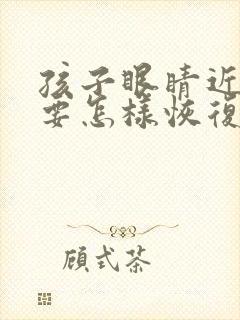 孩子眼睛近
要怎樣恢復
顧式茶